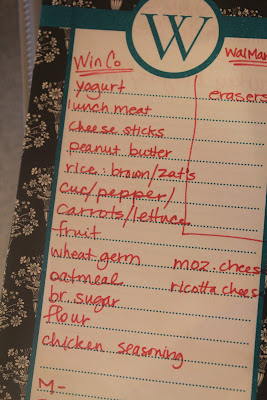 W
WinCo WalMar
yogurt erasers
lunch meat
cheese sticks
peanut butter
rice: brown/zat's
cuc/pepper/
carrots/lettuce
fruit
wheat germ moz. chees
oatmeal ricotta chees
br. sugar
flour
chicken seasoning
M-